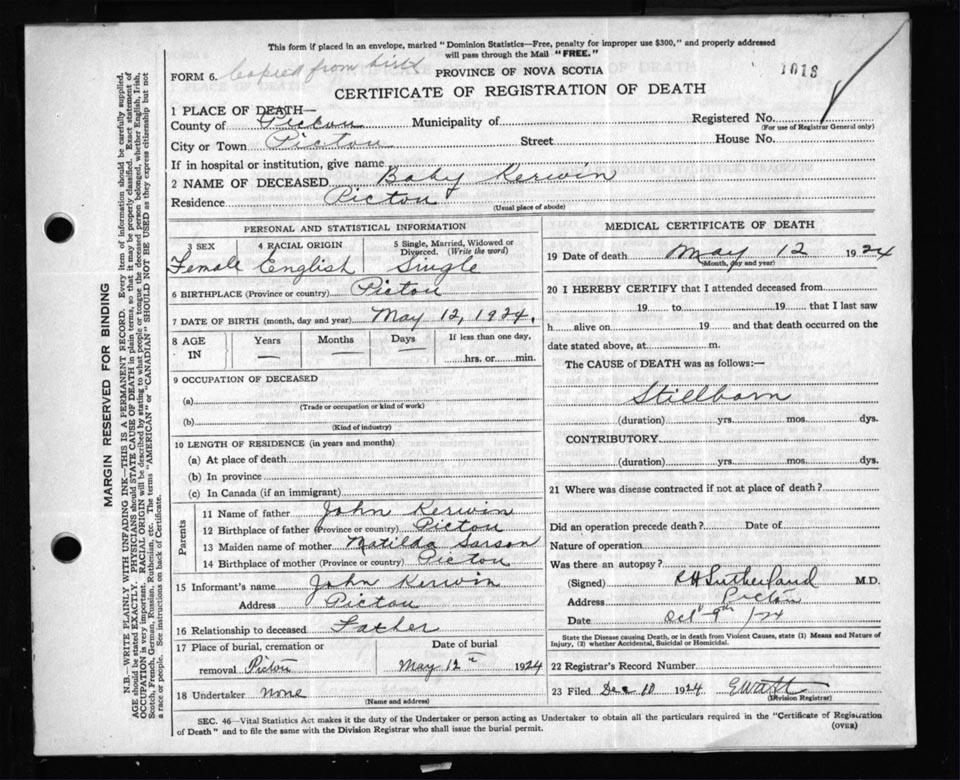 This form if placed in an envelope, marked "Dominion Statistics—Free, penalty for improper use $300," and properly addressed
will pass through the Mail "FREE."
FORM 6. Copied from birth
PROVINCE OF NOVA SCOTIA
1018
CERTIFICATE OF REGISTRATION OF DEATH
1 PLACE OF DEATH—
County of Pictou Municipality of Registered No.
(For use of Registrar General only)
City or Town Pictou Street House No.
If in hospital or institution, give name
2 NAME OF DECEASED Baby Kerwin
Residence Pictou
(Usual place of abode)
PERSONAL AND STATISTICAL INFORMATION
3 SEX 4 RACIAL ORIGIN 5 Single, Married, Widowed or Divorced. (Write the word)
Female English Single
6 BIRTHPLACE (Province or country) Pictou
7 DATE OF BIRTH (month, day and year) May 12, 1924.
8 AGE IN Years Months Days If less than one day,
— — — hrs. or min.
9 OCCUPATION OF DECEASED
(a)
(Trade or occupation or kind of work)
(b)
(Kind of industry)
10 LENGTH OF RESIDENCE (in years and months)
(a) At place of death
(b) In province
(c) In Canada (if an immigrant)
Parents
11 Name of father John Kerwin
12 Birthplace of father (Province or country) Pictou
13 Maiden name of mother Matilda Sarson
14 Birthplace of mother (Province or country) Pictou
15 Informant's name John Kerwin
Address Pictou
16 Relationship to deceased Father
17 Place of burial, cremation or Date of burial
removal Pictou May 12th 1924
18 Undertaker none
(Name and address)
MEDICAL CERTIFICATE OF DEATH
19 Date of death May 12 1924
(Month, day and year)
20 I HEREBY CERTIFY that I attended deceased from
19 to 19 that I last saw
h alive on 19 and that death occurred on the
date stated above, at m.
The CAUSE of DEATH was as follows:—
Stillborn
(duration) yrs. mos. dys.
CONTRIBUTORY
(duration) yrs. mos. dys.
21 Where was disease contracted if not at place of death?
Did an operation precede death? Date of
Nature of operation
Was there an autopsy?
(Signed) R H Sutherland M.D.
Address Pictou
Date Oct 9th /24
State the Disease causing Death, or in death from Violent Causes, state (1) Means and Nature of
Injury, (2) whether Accidental, Suicidal or Homicidal.
22 Registrar's Record Number
23 Filed Dec 10 1924
(Division Registrar)
SEC. 46—Vital Statistics Act makes it the duty of the Undertaker or person acting as Undertaker to obtain all the particulars required in the "Certificate of Registration
of Death" and to file the same with the Division Registrar who shall issue the burial permit. (OVER)
MARGIN RESERVED FOR BINDING
N.B.—WRITE PLAINLY WITH UNFADING INK—THIS IS A PERMANENT RECORD. Every item of information should be carefully supplied.
AGE should be stated EXACTLY. PHYSICIANS should STATE CAUSE OF DEATH in plain terms, so that it may be properly classified. Exact statement of
OCCUPATION is very important. RACIAL ORIGIN will be described by stating to what people or tongue the deceased person belonged, whether English, Irish,
Scotch, French, German, Russian, Ruthenian, etc. The terms "AMERICAN" or "CANADIAN" SHOULD NOT BE USED as they express citizenship but not
a race or people. See instructions on back of Certificate.